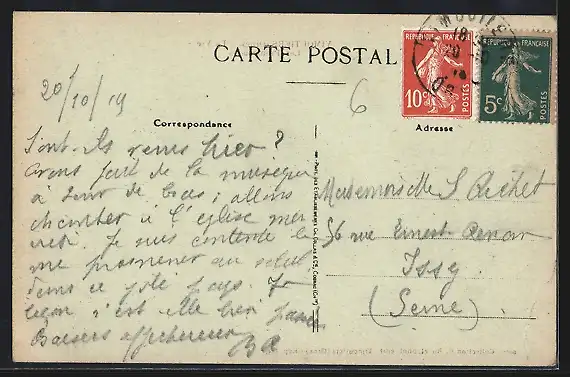 CARTE POSTALE
REPUBLIQUE FRANÇAISE
10c
POSTES
REPUBLIQUE FRANÇAISE
5c
POSTES
20/10/19
6
Correspondance
Adresse
Sont-ils venus hier ?
Avons fait de la musique
à tour de bras ; allons
chanter à l'église mer
credi. Je suis contente de
me promener au soleil
dans ce joli pays.
leçon s'est elle bien passée
Baisers affectueux
Mademoiselle S
56 rue Ernest Renan
Issy
(Seine)